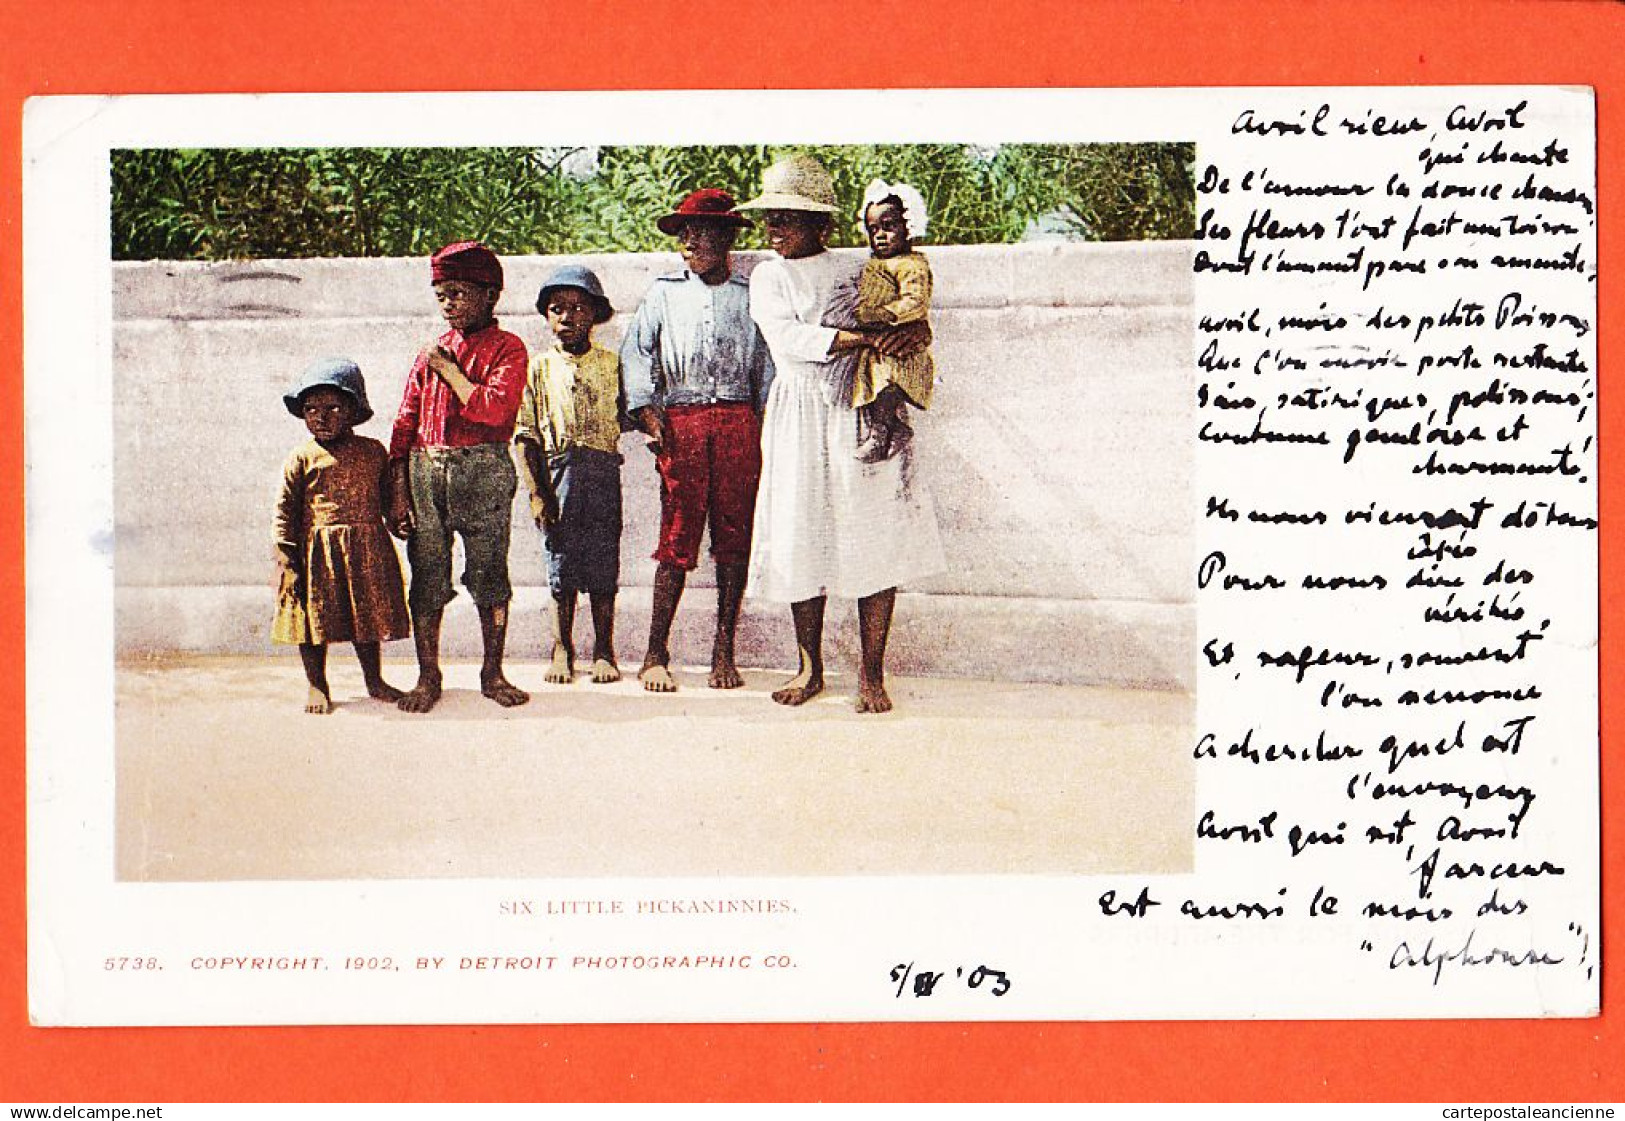 Avril rieur, Avril
qui chante
De l'amour la douce chanson,
Ses fleurs t'ont fait une toison
Dont l'amant pare son amante.
Avril, mois des petits Poissons
Que l'on envoie poste restante
Gais, satiriques, polissons,
Coutume gauloise et
charmante!
Ils nous viennent de tous
côtés
Pour nous dire des
vérités,
Et, rageur, souvent
l'on renonce
A chercher quel est
l'envoyeur
Avril qui rit, Avril
farceur
Est aussi le mois des
"Alphonse"!
SIX LITTLE PICKANINNIES.
5738. COPYRIGHT, 1902, BY DETROIT PHOTOGRAPHIC CO.
5/IV '03
www.delcampe.net
cartepostaleancienne